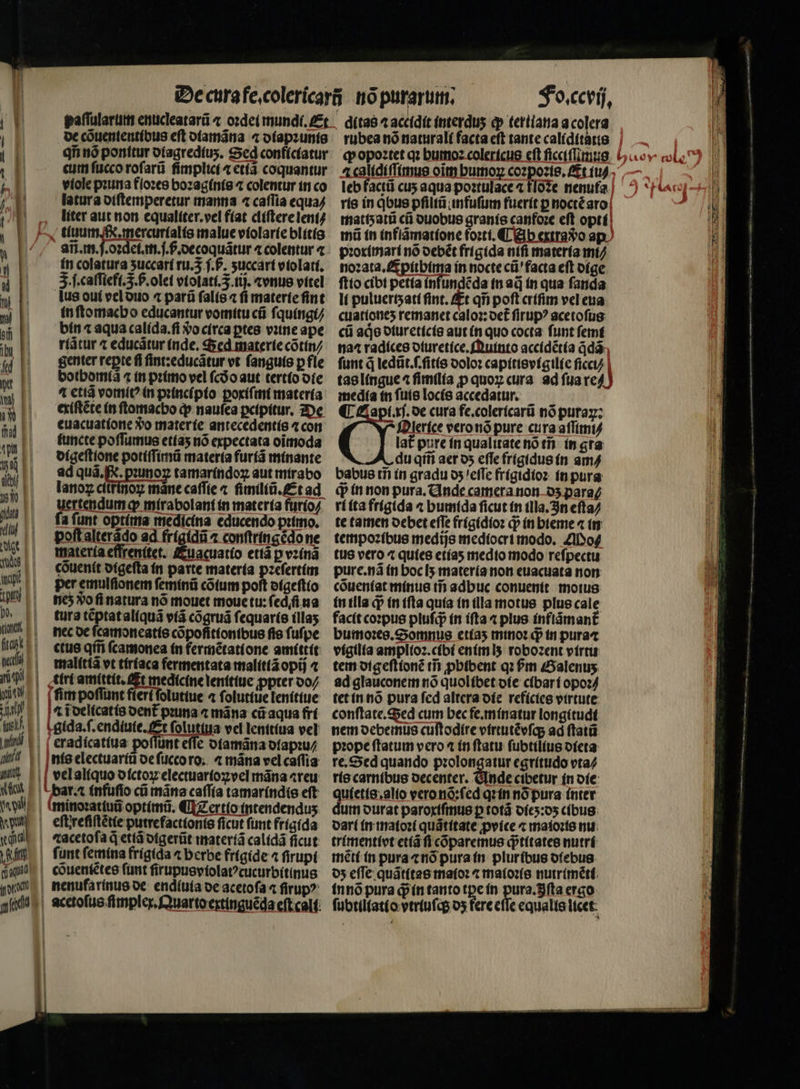 De cura fe.colericarũ nõ purarum. Fo.ccvij.
paſſularum enucleatarũ ⁊ oꝛdei mundi. Et
de cõuenientibus eſt diamãna ⁊ diapꝛunis
qñ nõ ponitur diagrediuʒ. Sed conficiatur
cum ſucco roſarũ ſimplici ⁊ etiã coquantur
viole pꝛuna floꝛes boꝛaginis ⁊ colentur in co
latura diſtemperetur manna ⁊ caſſia equa⸗
liter aut non equaliter.vel fiat cliſtere leni⸗
tiuum.℞.mercurialis malue violarie blitis
añ.m.ſ.oꝛdei.m.ſ.ß.decoquãtur ⁊ colentur ⁊
in colatura ʒuccari ru.℥ ſ.ß. ʒuccari violati.
℥.ſ.caſſieſ.℥.ß.olei violati.℥.iij. ⁊vnus vitel
lus oui vel duo ⁊ parũ ſalis ⁊ ſi materie ſint
in ſtomacho educantur vomitu cũ ſquingi⸗
bin ⁊ aqua calida.ſi ꝟo circa ptes vꝛine ape
riãtur ⁊ educãtur inde. Sed materie cõtin⸗
genter repte ſi ſint:educãtur vt ſanguis ꝑ fle
bothomiã ⁊ in pꝛimo vel ſcðo aut tertio die
⁊ etiã vomitꝰ in pꝛincipio ꝓximi materia
exiſtẽte in ſtomacho ꝙ nauſea ꝑcipitur. De
euacuatione ꝟo materie antecedentis ⁊ con
iuncte poſſumus etiaʒ nõ expectata oĩmoda
digeſtione potiſſimũ materia furiã minante
ad quã.℞.pꝛunoꝝ tamarindoꝝ aut mirabo
lanoꝝ citrinoꝝ mãne caſſie ⁊ ſimiliũ.Et ad
uertendum ꝙ mirabolani in materia furio⸗
ſa ſunt optima medicina educendo pꝛimo.
poſt alterãdo ad frigidũ ⁊ conſtringẽdo ne
materia effrenitet. Euacuatio etiã ꝑ vꝛinã
cõuenit digeſta in parte materia pꝛeſertim
per emulſionem ſeminũ cõium poſt digeſtio
neʒ ꝟo ſi natura nõ mouet moue tu: ſed ſi na
tura tẽptat aliquã viã cõgruã ſequaris illaʒ
nec de ſcamoneatis cõpoſitionibus ſis ſuſpe
ctus qm̃ ſcamonea in fermẽtatione amittit
malitiã vt tiriaca fermentata malitiã opij ⁊
tiri amittit. Et medicine lenitiue ꝓpter do⸗
ſim poſſunt fieri ſolutiue ⁊ ſolutiue lenitiue
⁊ ĩ delicatis dent̃ pꝛuna ⁊ mãna cũ aqua fri
gida.ſ.endiuie. Et ſolutiua vel lenitiua vel
eradicatiua poſſunt eſſe diamãna diapꝛu⸗
nis electuariũ de ſucco ro. ⁊ mãna vel caſſia
vel aliquo dictoꝝ electuarioꝝ vel mãna ⁊reu
bar.⁊ infuſio cũ mãna caſſia tamarindis eſt
minoꝛatiuũ optimũ. ¶ Tertio intendenduʒ
eſt:reſiſtẽtie putrefactionis ſicut ſunt frigida
⁊acetoſa q̃ etiã digerũt materiã calidã ſicut
ſunt ſemina frigida ⁊ herbe frigide ⁊ ſirupi
cõueniẽtes ſunt ſirupus violatꝰ cucurbitinus
nenufarinus de endiuia de acetoſa ⁊ ſirupꝰ
acetoſus ſimplex. Quarto extinguẽda eſt cali
ditas ⁊ accidit interduʒ ꝙ tertiana a colera
rubea nõ naturali facta eſt tante caliditatis
ꝙ opoꝛtet qꝛ humoꝛ colericus eſt ſicciſſimus
⁊ calidiſſimus oĩm humoꝝ coꝛpoꝛis. Et iu⸗
leb factũ cuʒ aqua poꝛtulace ⁊ floꝛe nenufa
ris in q̃bus pſiliũ infuſum fuerit ꝑ noctẽ aro⸗
matiʒatũ cũ duobus granis canfoꝛe eſt opti
mũ in inflãmatione foꝛti. ¶ Ab extraꝟo ap
pꝛoximari nõ debẽt frigida niſi materia mi⸗
noꝛata. Epithima in nocte cũ facta eſt dige
ſtio cibi petia infundẽda in aq̃ in qua ſanda
li puluerʒati ſint. Et qñ poſt criſim vel eua
cuationeʒ remanet caloꝛ: det̃ ſirupꝰ acetoſus
cũ aq̃s diureticis aut in quo cocta ſunt ſemi
na⁊ radices diuretice. Quinto accidẽtia q̃dã
ſunt q̃ ledũt.ſ.ſitis doloꝛ capitis vigilie ſicci⸗
tas lingue ⁊ ſimilia ꝓ quoꝝ cura ad ſua re⸗
media in ſuis locis accedatur.
¶ Capi.xj. de cura fe.colericarũ nõ puraꝝ:
Olerice vero nõ pure cura aſſimi⸗
lat̃ pure in qualitate nõ tm̃ in gra
du qm̃ aer dʒ eſſe frigidus in am⸗
babus tm̃ in gradu dʒ eſſe frigidioꝛ in pura
ꝙ̃ in non pura. Unde camera non dʒ para⸗
ri ita frigida ⁊ humida ſicut in illa. In eſta⸗
te tamen debet eſſe frigidioꝛ ꝙ̃ in hieme ⁊ in
tempoꝛibus medijs mediocri modo. Mo⸗
tus vero ⁊ quies etiaʒ medio modo reſpectu
pure.nã in hoc lʒ materia non euacuata non
cõueniat minus tm̃ adhuc conuenit motus
in illa ꝙ̃ in iſta quia in illa motus plus cale
facit coꝛpus pluſꝙ̃ in iſta ⁊ plus inflãmant̃
humoꝛes. Somnus etiaʒ minoꝛ ꝙ̃ in pura⁊
vigilia amplioꝛ.cibi enim lʒ roboꝛent virtu
tem digeſtionẽ tm̃ ꝓhibent qꝛ ẜm Galenuʒ
ad glauconem nõ quolibet die cibari opoꝛ⸗
tet in nõ pura ſed altera die reficies virtute
conſtate. Sed cum hec fe.minatur longitudi
nem debemus cuſtodire virtutẽ vſqʒ ad ſtatũ
pꝛope ſtatum vero ⁊ in ſtatu ſubtilius dieta
re. Sed quando pꝛolongatur egritudo vta⸗
ris carnibus decenter. Unde cibetur in die
quietis.alio vero nõ:ſed qꝛ in nõ pura inter
dum durat paroxiſmus ꝑ totã dieʒ:dʒ cibus
dari in maioꝛi quãtitate ꝓvice ⁊ maioꝛis nu
trimenti vt etiã ſi cõparemus q̃titates nutri
mẽti in pura ⁊ nõ pura in pluribus diebus
dʒ eſſe quãtitas maioꝛ ⁊ maioꝛis nutrimẽti
in nõ pura ꝙ̃ in tanto tꝑe in pura. Iſta ergo
ſubtiliatio vtriuſqʒ dʒ fere eſſe equalis licet